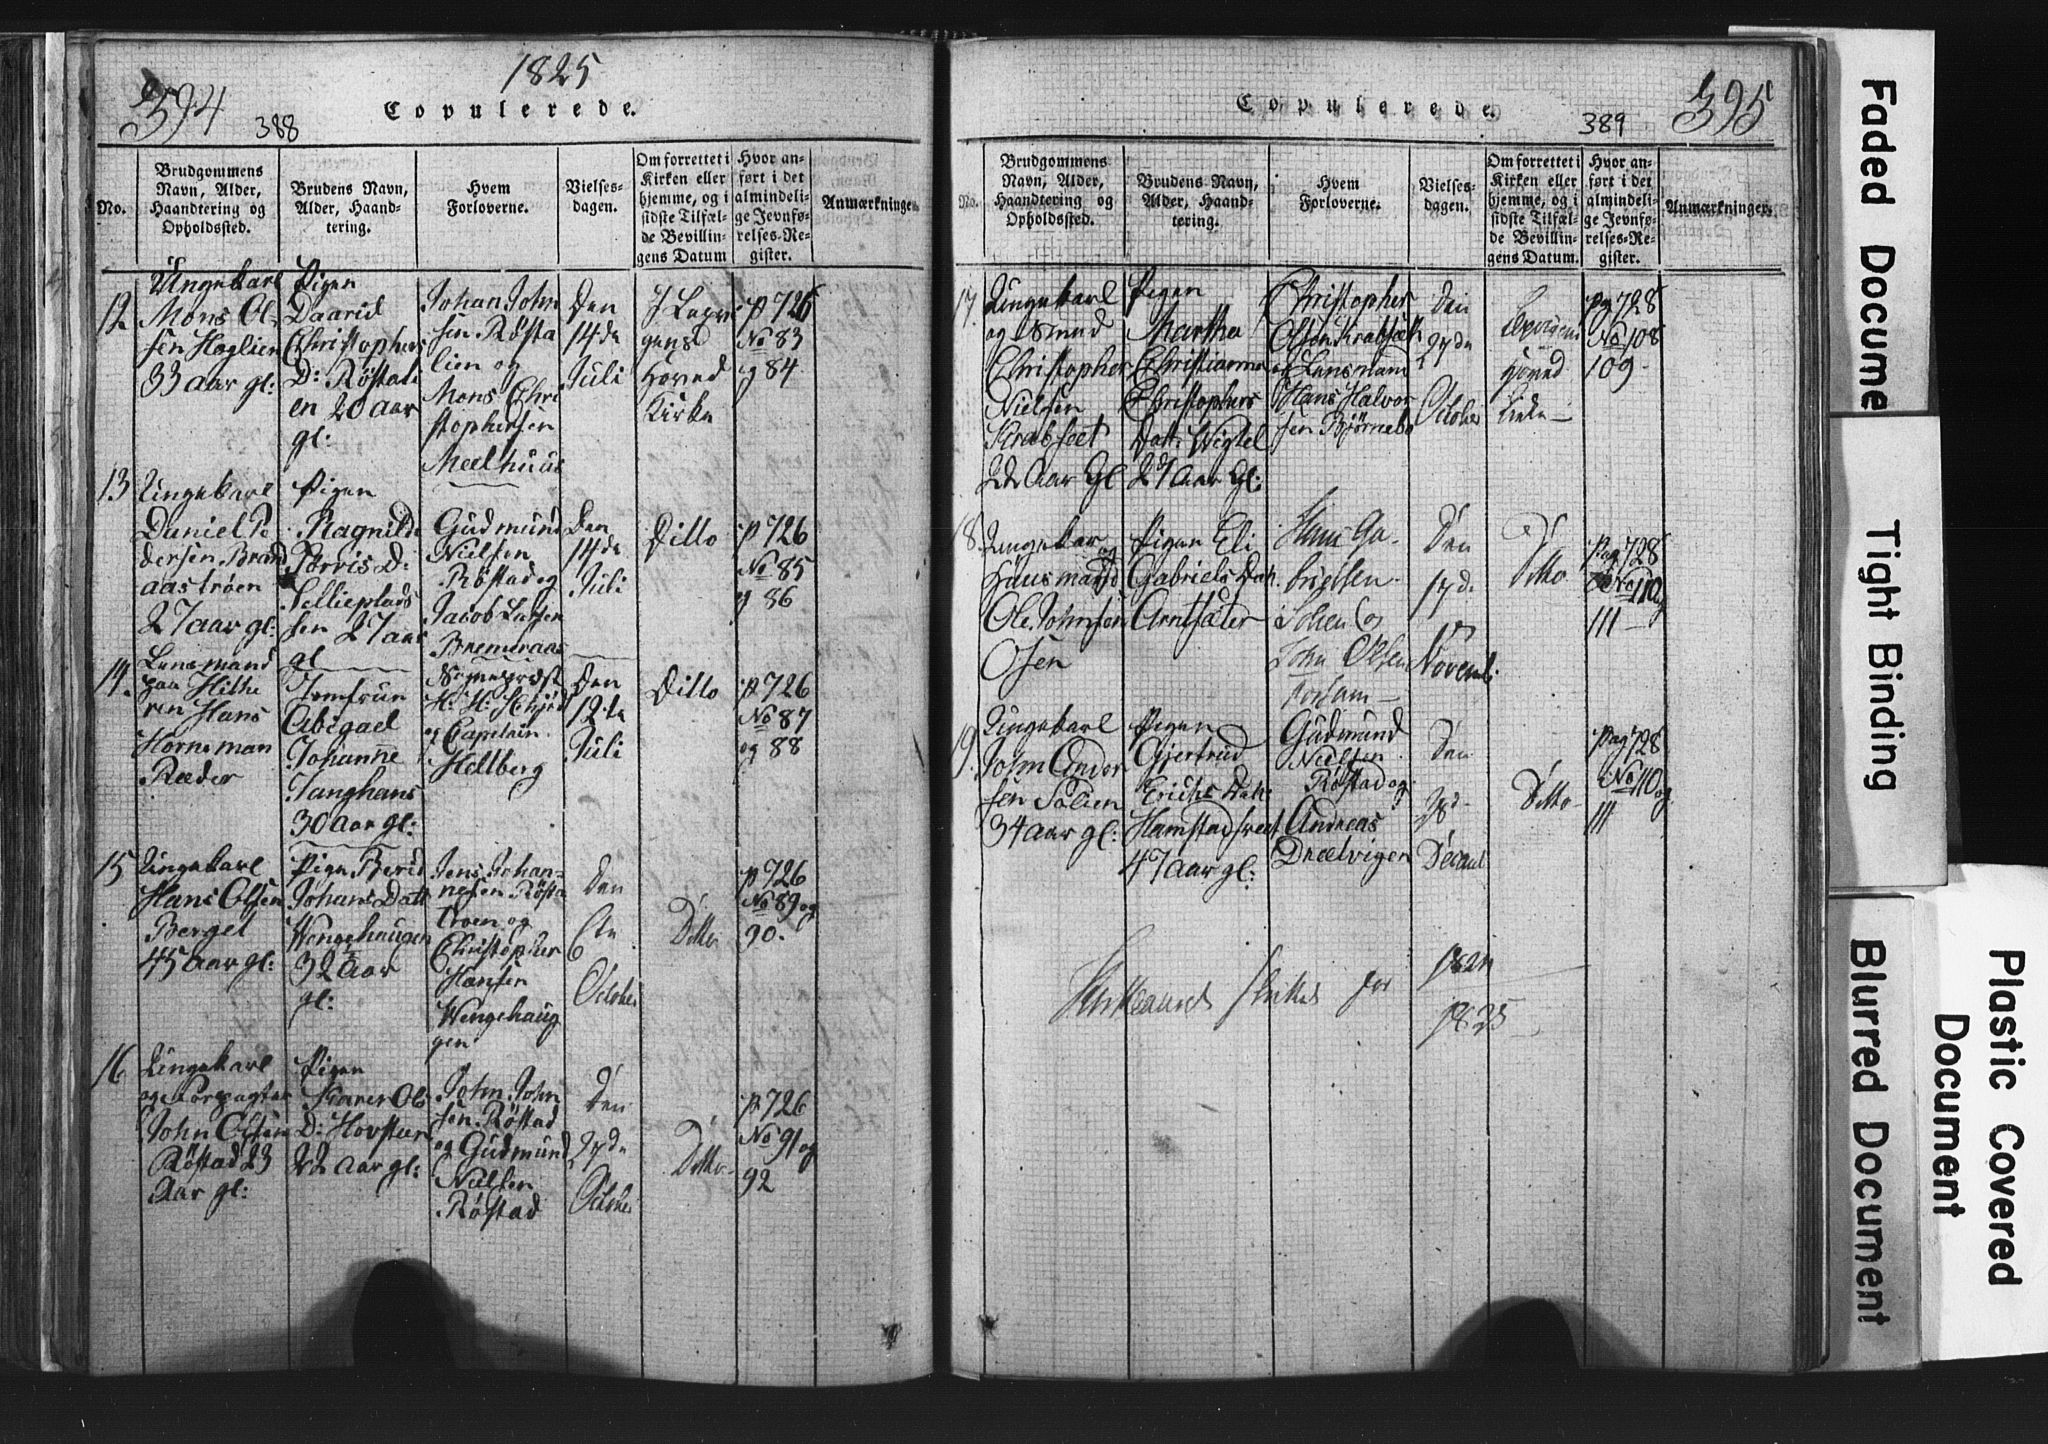 394
388
1825
Copulerede.
No.
Brudgommens
Navn, Alder,
Haandtering og
Opholdssted.
Brudens Navn,
Alder, Haand-
tering.
Hvem
Forloverne.
Vielses-
dagen.
Om forrettet i
Kirken eller
hjemme, og i
sidste Tilfæl-
de Bevillin-
gens Datum
Hvor an-
ført i det
almindeli-
ge Jevnfø-
relses-Re-
gister.
Anmærkninger.
12.
Ungekarl
Mons Ol
sen Hoglien
33 aar gl:
Pigen
Daarid
Christophers
D: Röstali
en 20 aar
gl:
Johan John
sen Rösta
lien og
Mons Chri
stophersen
Meelhuus
Den
14de
Juli
Hoved
Kirke
p 726
No 83
og 84
13
Ungekarl
Daniel Pe
dersen Brand
aastrøen
27 aar gl:
Pigen
Ragnild
D:
27 aar
gl
Gudmund
Nielsen
Röstad og
Jacob Larsen
Bremeraas
Den
14de
Juli
Ditto
p 726
No 85
og 86
14.
Lensmand
paa Hitte
ren Hans
Horneman
Ræder
Jomfrue
Abigael
Johanne
Tanghans
30 aar gl:
Sognepræst
H: H: Schjød
og Capitain
Hellberg
Den
12te
Juli
Ditto
p 726
No 87
og 88
15
Ungekarl
Hans Olsen
Berget
45 aar gl:
Pige Berid
Johans Datt
Wengehaugen
32 aar
gl:
Jens Johan-
nesen Rösta
troen og
Christopher
Hansen
Wengehaug
gen
Den
6te
October
Ditto
p 726
No 89 og
90.
16
Ungekarl
og Forpagter
John Olsen
Röstad 23
Aar gl:
Pigen
Karen Ols
D: Hovsteen
22 aar gl:
John John
sen Röstad
og Gudmund
Nielsen
Röstad
Den
27de
October
Ditto
p 726
No 91 og
92
Copulerede.
389
395
No.
Brudgommens
Navn, Alder,
Haandtering og
Opholdssted.
Brudens Navn,
Alder, Haand-
tering.
Hvem
Forloverne.
Vielses-
dagen.
Om forrettet i
Kirken eller
hjemme, og i
sidste Tilfæl-
de Bevillin-
gens Datum.
Hvor an-
ført i det
almindeli-
ge Jevnfø-
relses-Re-
gister.
Anmærkninger.
17.
Ungekarl
og Smed
Christopher
Nielsen
Krabseet
22 Aar Gl
Pigen
Martha
Christianna
Christophers
Datt: Wigtel
27 Aar Gl:
Christopher
Olsen Krabsæt
og Lensmand
Hans Halvor
sen Bjørnebo
Den
27de
October
Hoved
Kirke
pag 728
No 108
109
18.
Ungekar og
Huusmand
Ole Johnsen
Osen
Pigen Eli
Gabriels Dat.
Arntsæter
Hans Ga-
brielsen
Solien og
John Olsen
Den
17de
Novemb:
Ditto
Pag 728
No 110 og
111
19.
Ungekarl
John Ander
sen Solien
34 aar gl:
Pigen
Gjertrud
Erichs Dat:
47 aar gl:
Gudmund
Nielsen
Röstad og
Andreas
Dreelvigen
Den
28d
Decemb
Ditto
Pag 728
No 110 og
111
for
1825
Faded Docume
Tight Binding
Plastic Covered
Document
Blurred Document